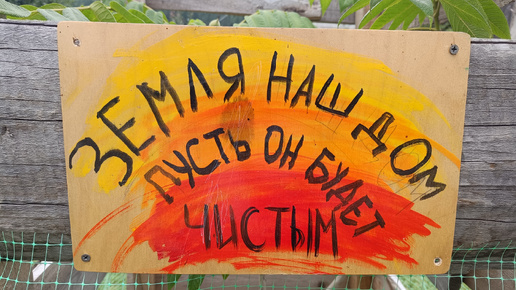 ЗЕМЛЯ НАШ ДОМ
ПУСТЬ ОН БУДЕТ
ЧИСТЫМ